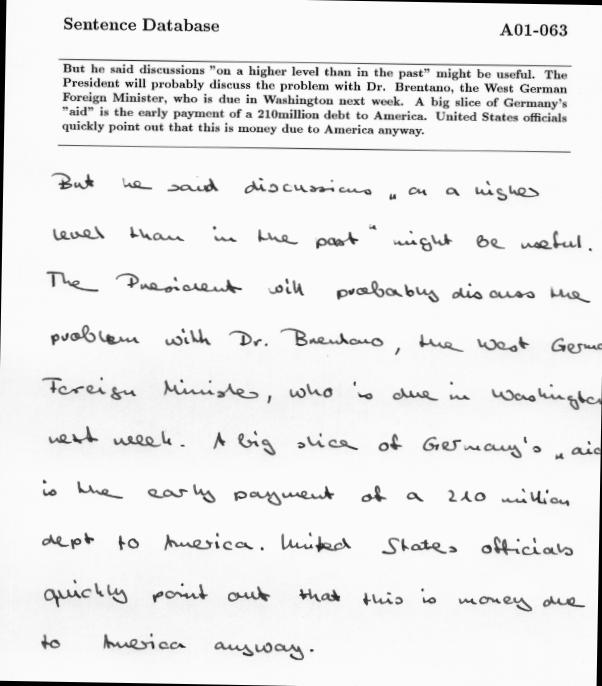 Sentence Database A01-063
But he said discussions "on a higher level than in the past" might be useful. The
President will probably discuss the problem with Dr. Brentano, the West German
Foreign Minister, who is due in Washington next week. A big slice of Germany's
"aid" is the early payment of a 210million debt to America. United States officials
quickly point out that this is money due to America anyway.
But he said discussions „on a higher
level than in the past" might be useful.
The President will probably discuss the
problem with Dr. Brentano, the West Germa
Foreign Minister, who is due in Washington
next week. A big slice of Germany's „aid
is the early payment of a 210 million
dept to America. United States officials
quickly point out that this is money due
to America anyway.